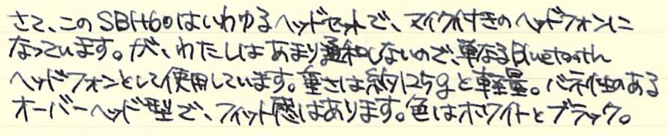 さて、このSBH60はいわゆるヘッドセットで、マイク付きのヘッドフォンに
なっています。が、わたしはあまり通和しないので、単なるBluetooth
ヘッドフォンとして使用しています。重さは約125gと軽量。バネ性のある
オーバーヘッド型で、フィット感はあります。色はホワイトとブラック。